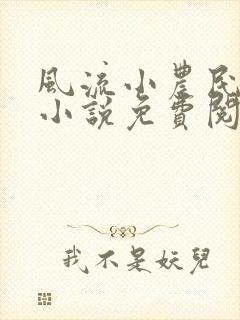 風流小農民
小說免費閱
我不是妖兒